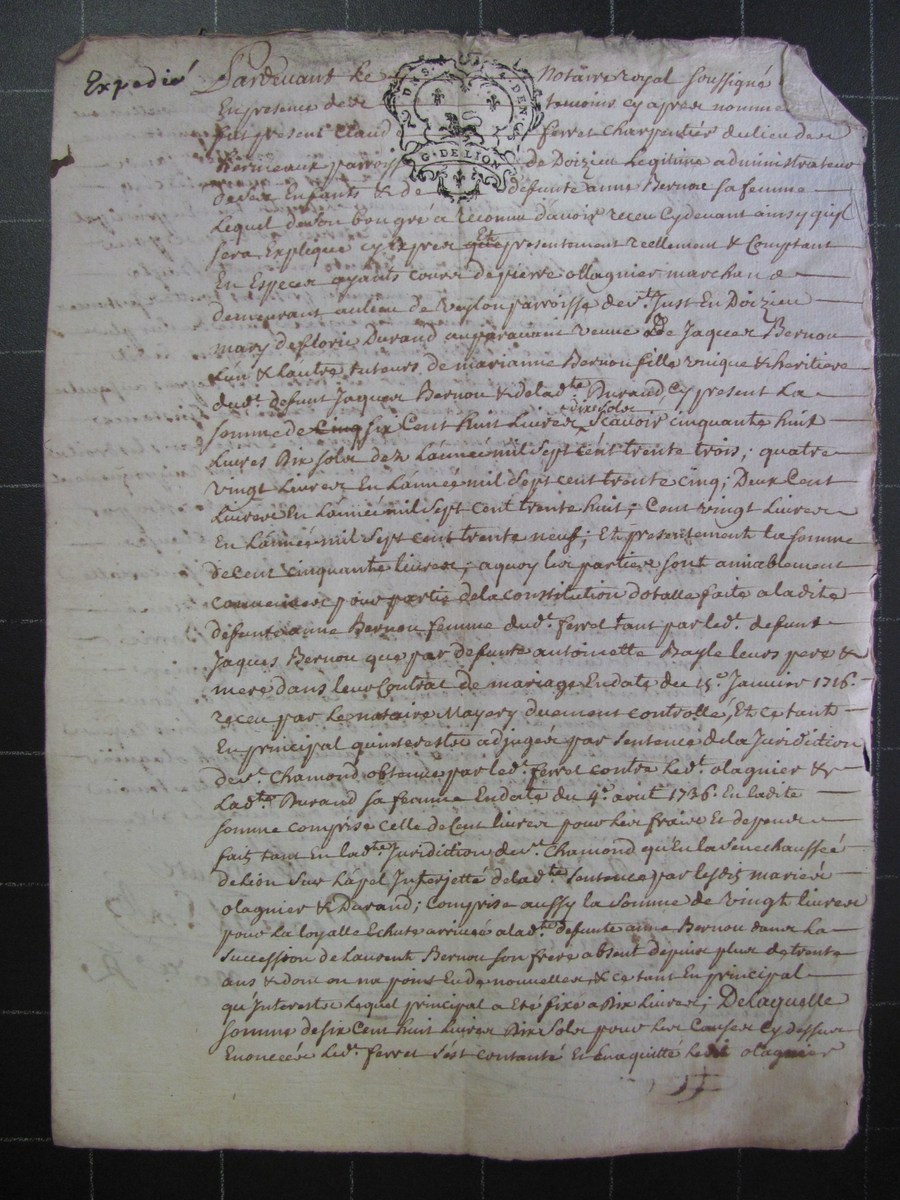 Expedié
Pardevant le Notaire royal soussigné
En presence de temoins cy apres nommé
fut present Claud ferret Charpentier du lieu de
parroiss de Doizieu Legitime administrateur
de ses Enfants & de défunte anne Bernou sa femme
Lequel de son bon gré a reconnu d'avoir receu cy devant ainsy qu'il
sera Expliqué cy apres Et presentement reellement & Comptant
En Especes ayants cours de pierre ollagnier marchand
demeurant au lieu de parroisse de st. Just En Doizieu
mary de florie Durand auparavant veuve de Jaques Bernou
L'un & L'autre tuteurs de marianne Bernou fille unique & heritiere
dud. defunt Jaques Bernou & de lad.te Durand Cy present La
somme de six Cent huit Livres dix sols scavoir cinquante huit
Livres Dix sols dez L'année mil sept cent trente trois ; quatre
vingt Livres En L'année mil sept cent trente cinq ; Deux Cent
Livres En L'année mil sept cent trente huit ; Cent vingt Livres
En L'année mil sept cent trente neuf ; Et presentement la somme
de cent cinquante livres ; a quoy les parties sont amiablement
convenues pour partie de la constitution dotalle faite a ladite
défunte anne Bernou femme dud. ferret tant par led. defunt
Jaques Bernou que par défunte antoinette Bayle leurs pere &
mere dans leur Contrat de mariage En date du 15e. Janvier 1716.
receu par Le notaire Mayery duement controllé, Et ce tant
En principal qu'interests adjugés par sentence de la Juridition
de st. Chamond obtenue par led. ferret contre led. olagnier &
Lad.te Durand sa femme En date du 4e. aout 1736. En ladite
somme comprise celle de Cent livres pour les fraix Et depens
fait tant En lad.te Juridition de st. Chamond qu'en la senechaussée
de Lion sur L'apel Interjetté de lad.te sentence par lesdis mariés
olagnier & Durand ; Comprise aussy la somme de vingt livres
pour la loyalle Echute arrivée a lad. defunte anne Bernou dans La
succession de Laurent Bernou son frere absent depuis plus de trente
ans & dont on na point En de nouvelles, & ce tant En principal
qu'Interests Lequel principal a Eté fixé a Dix Livres ; De Laquelle
somme de six Cent huit Livres Dix sols pour les Causes Cy dessus
Enoncées led. ferret s'est contanté Et En a quitté led. olagnier
G. DE LION